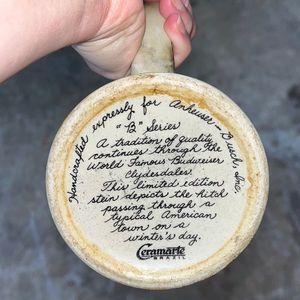 Handcrafted expressly for Anheuser-Busch, Inc.
"B" Series
A tradition of quality
continues through The
World Famous Budweiser
Clydesdales.
This limited edition
stein depicts the hitch
passing through a
typical American
town on a
winter's day.
Ceramarte
BRAZIL